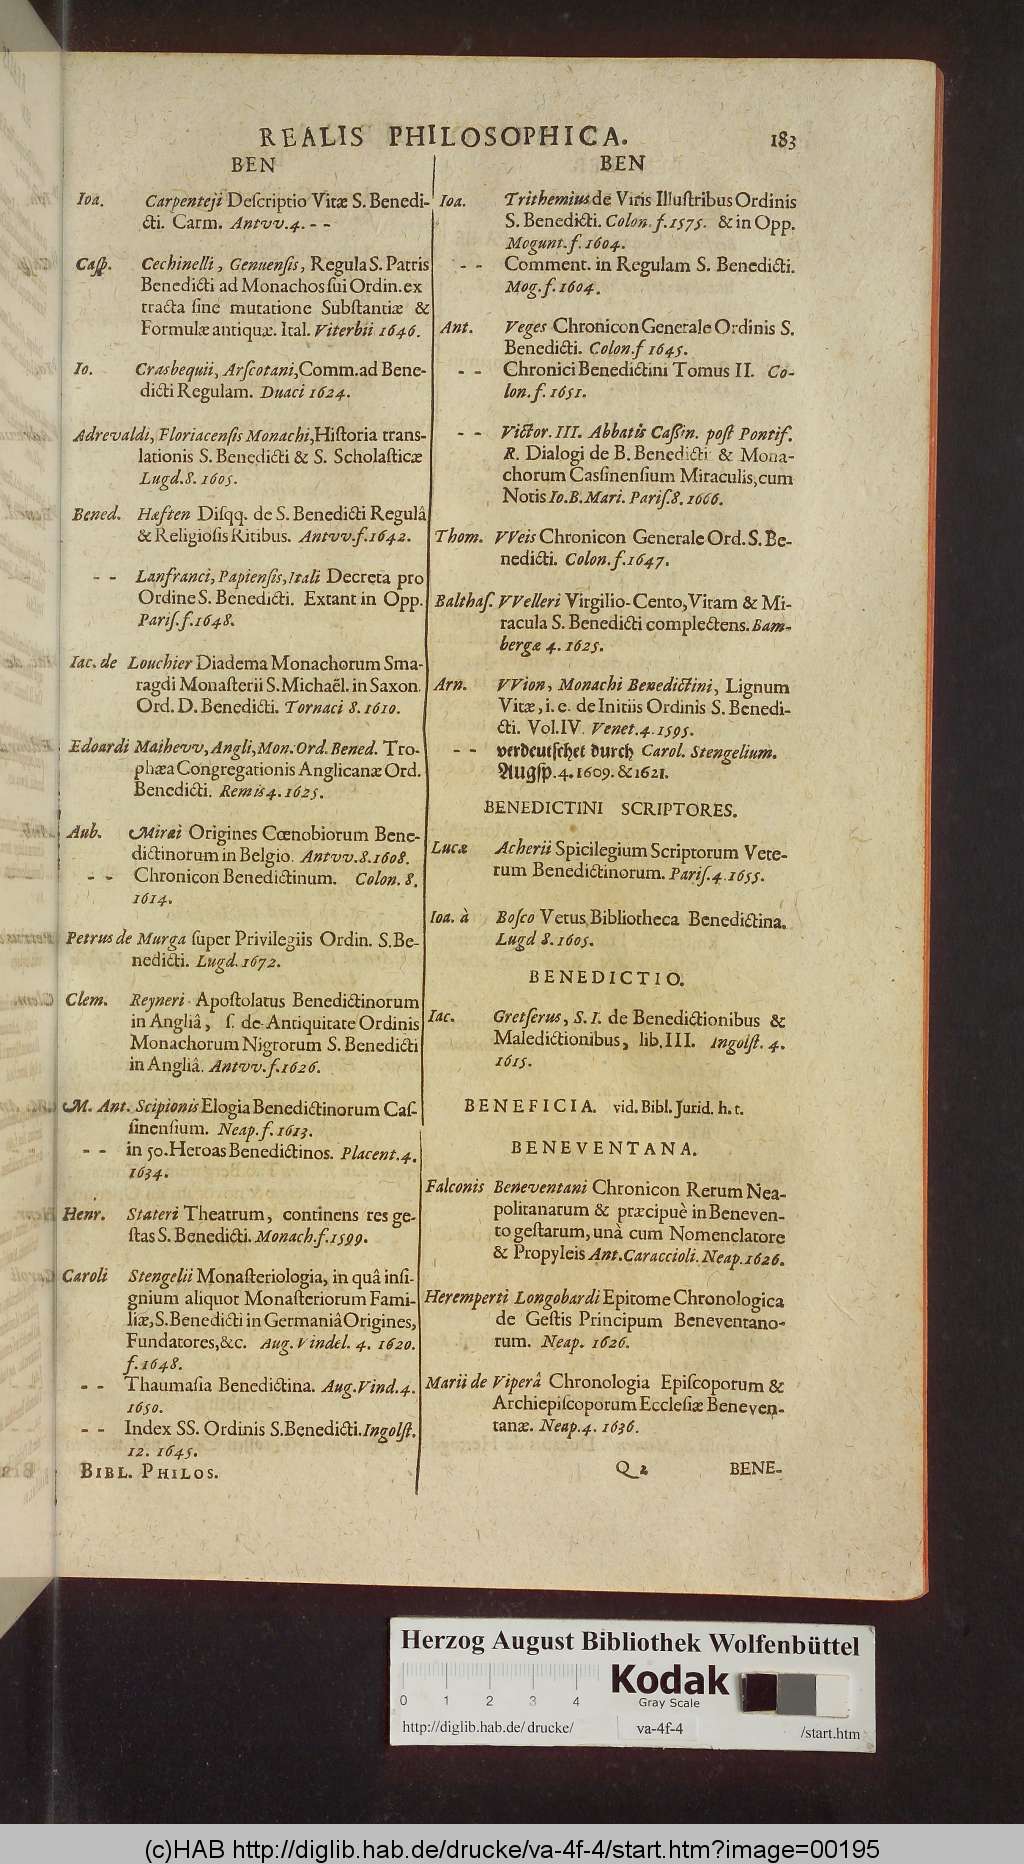 REALIS PHILOSOPHICA.
183
BEN
Ioa. Carpenteji Deſcriptio Vitæ S. Benedi-
cti. Carm. Antvv. 4. - -
Caſp. Cechinelli, Genuenſis, Regula S. Patris
Benedicti ad Monachos ſui Ordin. ex
tracta ſine mutatione Subſtantiæ &
Formulæ antiquæ. Ital. Viterbii 1646.
Io. Crasbequii, Arſcotani, Comm. ad Bene-
dicti Regulam. Duaci 1624.
Adrevaldi, Floriacenſis Monachi, Hiſtoria trans-
lationis S. Benedicti & S. Scholaſticæ
Lugd. 8. 1605.
Bened. Hæften Diſqq. de S. Benedicti Regulâ
& Religioſis Ritibus. Antvv. f. 1642.
- - Lanfranci, Papienſis, Itali Decreta pro
Ordine S. Benedicti. Extant in Opp.
Pariſ. f. 1648.
Iac. de Louchier Diadema Monachorum Sma-
ragdi Monaſterii S. Michaël. in Saxon.
Ord. D. Benedicti. Tornaci 8. 1610.
Edoardi Maihevv, Angli, Mon. Ord. Bened. Tro-
phæa Congregationis Anglicanæ Ord.
Benedicti. Remis 4. 1625.
Aub. Miræi Origines Cœnobiorum Bene-
dictinorum in Belgio. Antvv. 8. 1608.
- - Chronicon Benedictinum. Colon. 8.
1614.
Petrus de Murga ſuper Privilegiis Ordin. S. Be-
nedicti. Lugd. 1672.
Clem. Reyneri Apoſtolatus Benedictinorum
in Angliâ, ſ. de Antiquitate Ordinis
Monachorum Nigrorum S. Benedicti
in Angliâ. Antvv. f. 1626.
M. Ant. Scipionis Elogia Benedictinorum Caſ-
ſinenſium. Neap. f. 1613.
- - in 50. Heroas Benedictinos. Placent. 4.
1634.
Henr. Stateri Theatrum, continens res ge-
ſtas S. Benedicti. Monach. f. 1599.
Caroli Stengelii Monaſteriologia, in quâ inſi-
gnium aliquot Monaſteriorum Fami-
liæ, S. Benedicti in Germaniâ Origines,
Fundatores, &c. Aug. Vindel. 4. 1620.
f. 1648.
- - Thaumaſia Benedictina. Aug. Vind. 4.
1650.
- - Index SS. Ordinis S. Benedicti. Ingolſt.
12. 1645.
BIBL. PHILOS.
BEN
Ioa. Trithemius de Viris Illuſtribus Ordinis
S. Benedicti. Colon. f. 1575. & in Opp.
Mogunt. f. 1604.
- - Comment. in Regulam S. Benedicti.
Mog. f. 1604.
Ant. Veges Chronicon Generale Ordinis S.
Benedicti. Colon. f 1645.
- - Chronici Benedictini Tomus II. Co-
lon. f. 1651.
- - Victor. III. Abbatis Caßin. poſt Pontif.
R. Dialogi de B. Benedicti & Mona-
chorum Caſſinenſium Miraculis, cum
Notis Io. B. Mari. Pariſ. 8. 1666.
Thom. VVeis Chronicon Generale Ord. S. Be-
nedicti. Colon. f. 1647.
Balthaſ. VVelleri Virgilio-Cento, Vitam & Mi-
racula S. Benedicti complectens. Bam-
bergæ 4. 1625.
Arn. VVion, Monachi Benedictini, Lignum
Vitæ, i. e. de Initiis Ordinis S. Benedi-
cti. Vol. IV. Venet. 4. 1595.
- - verdeutſchet durch Carol. Stengelium.
Augſp. 4. 1609. & 1621.
BENEDICTINI SCRIPTORES.
Lucæ Acherii Spicilegium Scriptorum Vete-
rum Benedictinorum. Pariſ. 4. 1655.
Ioa. à Boſco Vetus Bibliotheca Benedictina.
Lugd 8. 1605.
BENEDICTIO.
Iac. Gretſerus, S. I. de Benedictionibus &
Maledictionibus, lib. III. Ingolſt. 4.
1615.
BENEFICIA. vid. Bibl. Jurid. h. t.
BENEVENTANA.
Falconis Beneventani Chronicon Rerum Nea-
politanarum & præcipuè in Beneven-
to geſtarum, unà cum Nomenclatore
& Propyleis Ant. Caraccioli. Neap. 1626.
Heremperti Longobardi Epitome Chronologica
de Geſtis Principum Beneventano-
rum. Neap. 1626.
Marii de Viperâ Chronologia Epiſcoporum &
Archiepiſcoporum Eccleſiæ Beneven-
tanæ. Neap. 4. 1636.
Q 2
BENE-
Herzog August Bibliothek Wolfenbüttel
0 1 2 3 4
Kodak
Gray Scale
http://diglib.hab.de/drucke/ va-4f-4 /start.htm
(c)HAB http://diglib.hab.de/drucke/va-4f-4/start.htm?image=00195